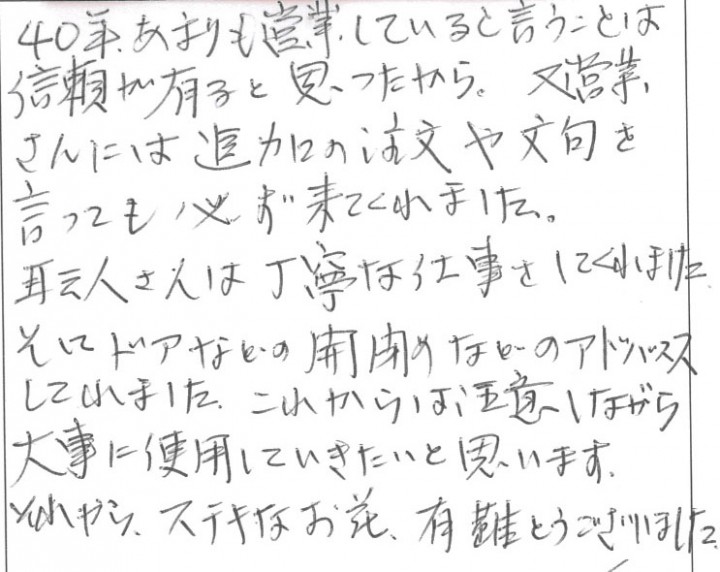 40年あまりも営業していると言うことは
信頼が有ると思ったから。又営業
さんには追加の注文や文句を
言っても必ず来てくれました。
耺人さんは丁寧な仕事をしてくれました
そしてドアなどの開閉めなどのアドバイス
してくれました。これからは注意しながら
大事に使用していきたいと思います。
それから、ステキなお花、有難とうございました。